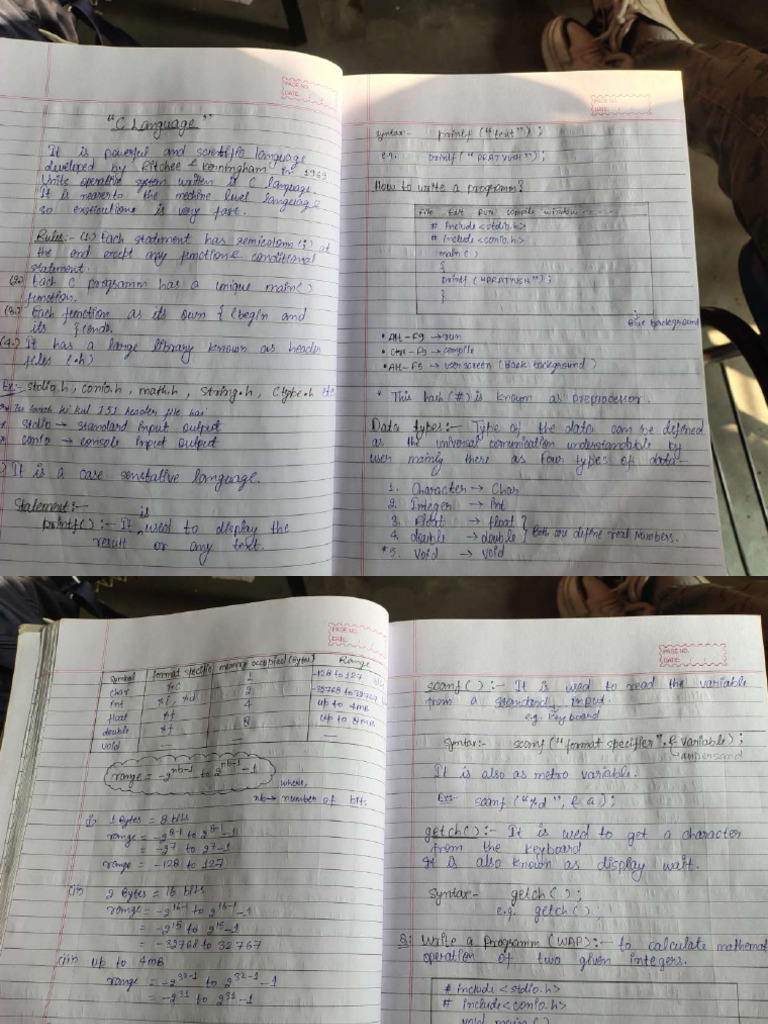 PAGE NO.
DATE:
"C Language"
It is powerful and scentific language
developed by Ritchee & Kerningham in 1969
Unix operative system written is C language.
It is nearer to the machine level language
so exsticutions is very fast.
Rules:- (1.) Each statement has semicolon(;) at
the end except any function & conditional
statement.
(2.) Each C programm has a unique main()
function.
(3.) Each function as its own { (begin and
its } (end).
(4.) It has a large library known as header
files (.h)
Ex:- stdio.h, conio.h, math.h, string.h, ctype.h etc
ki kul 151 header file hai
* stdio → standard input output
* conio → console input output
It is a case senstative language.
Statement:-
printf() :- It is used to display the
result or any text.
PAGE NO.
DATE:
Syntax:- printf ("text");
e.g. printf ("PRATYUSH");
How to write a programm?
File Edit Run compile window
# include <stdio.h>
# include <conio.h>
main ( )
{
printf ("PRATYUSH");
}
Blue background
• Alt - F9 → run
• Ctrl - F9 → compile
• Alt - F5 → user screen (Back background)
* This hash (#) is known as preprocessor.
Data types:- Type of the data can be defined
as the universal comunication understandable by
user mainly there as four types of data-
1. Character → Char
2. Integer → Int
3. Float → float }
4. double → double } Both are define real numbers.
*5. Void → void
PAGE NO.
DATE:
Symbol format specific memory occupied (Bytes) Range
char %c 1 -128 to 127
Int %i, %d 2 -32768 to 32767
float %f 4 up to 4mb
double %f 8 up to 8mb
void — — —
range = -2^nb-1 to 2^nb-1 -1
where,
nb → number of bits
i) 1 Bytes = 8 bits
range = -2^8-1 to 2^8-1 -1
= -2^7 to 2^7-1
range = -128 to 127
(ii) 2 Bytes = 16 bits
range = -2^16-1 to 2^16-1 -1
= -2^15 to 2^15-1
= -32768 to 32767
(iii) up to 4mb
range = -2^32-1 to 2^32-1 -1
= -2^31 to 2^31-1
PAGE NO.
DATE:
scanf() :- It is used to read the variable
from a standardy input.
e.g. Keyboard
Syntax:- scanf ("format specifier", & variable);
ampersand
It is also as metro variable.
Ex:- scanf ("%d", & a);
getch() :- It is used to get a character
from the keyboard
It is also known as display wait.
Syntax- getch ( );
e.g. getch ( );
Q: Write a Programm (WAP):- to calculate mathemat
operation of two given integers.
# include <stdio.h>
# include <conio.h>
void main ( )